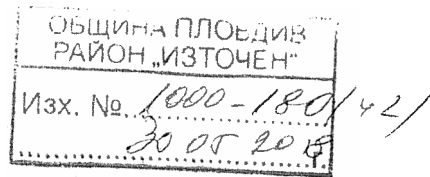 ОБЩИНА ПЛОВДИВ
РАЙОН „ИЗТОЧЕН“
Изх. №. 1000-180/42/
30 05 20